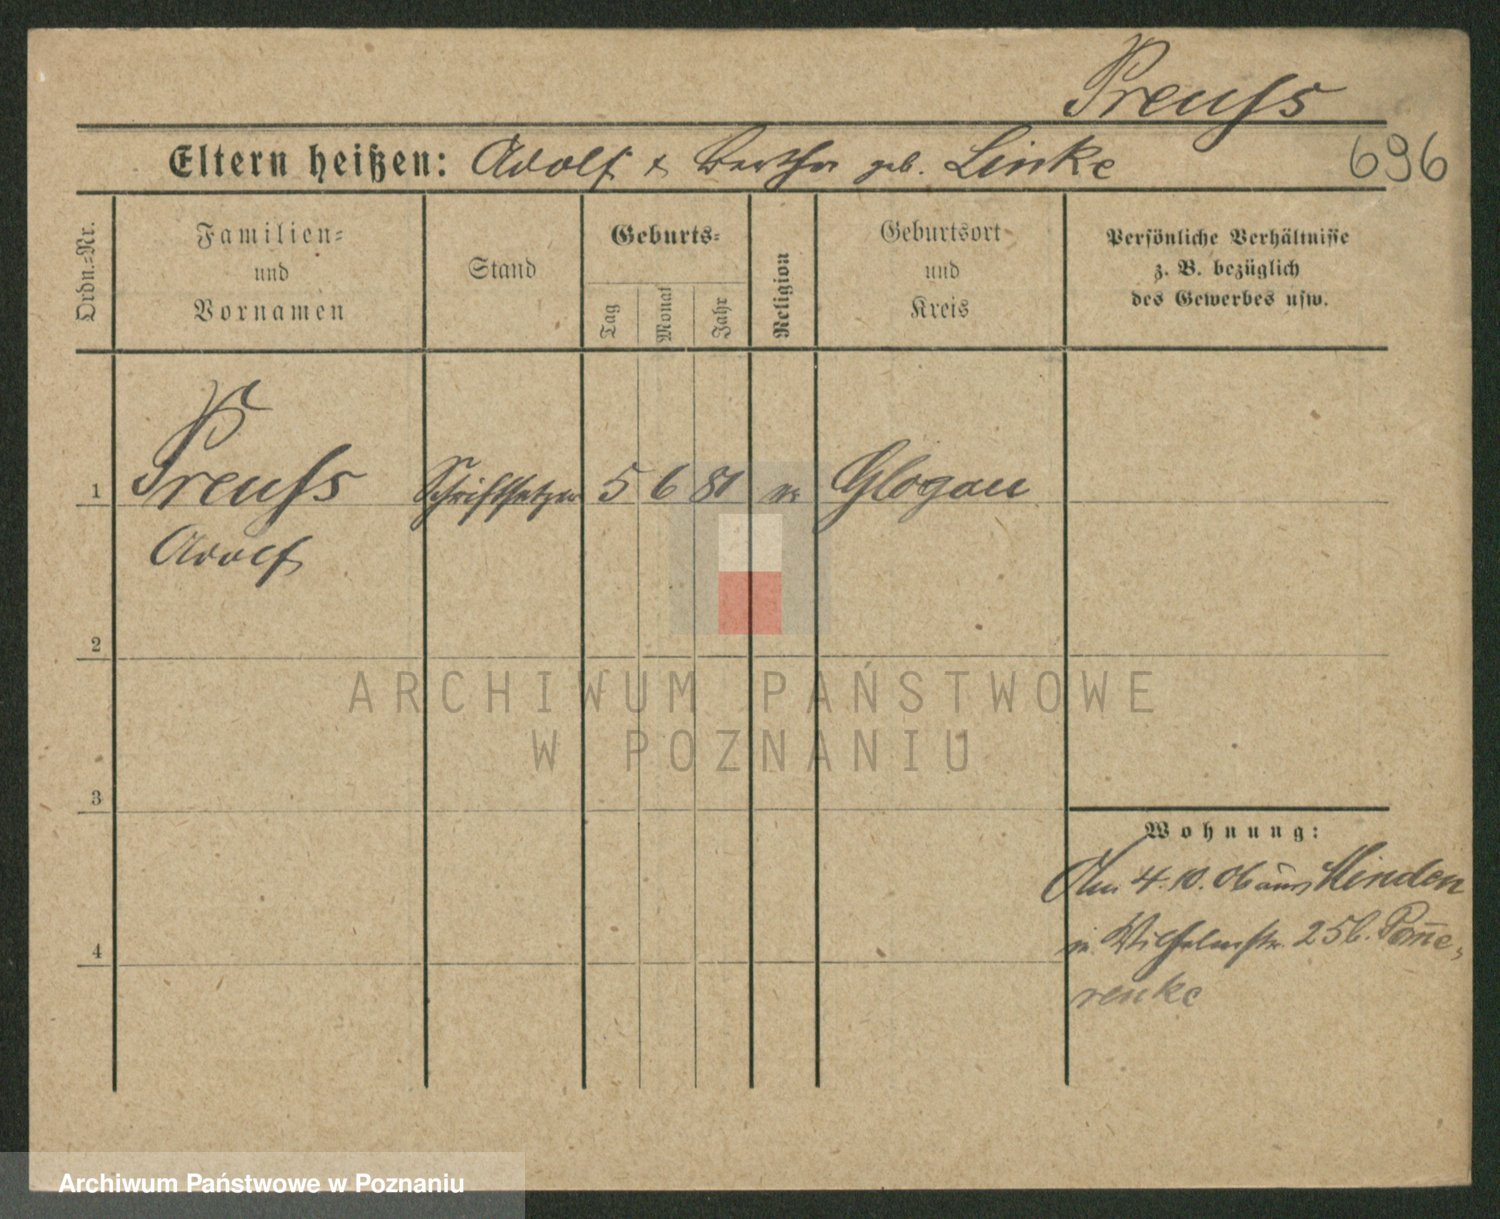 Preuß
Eltern heißen: Adolf & Bertha geb. Linke
696
Ordn.=Nr.
Familien=
und
Vornamen
Stand
Geburts=
Tag
Monat
Jahr
Religion
Geburtsort
und
Kreis
Persönliche Verhältnisse
z. B. bezüglich
des Gewerbes usw.
1 Preuß Schriftsetzer 5 6 81 Glogau
Adolf
2
ARCHIWUM PAŃSTWOWE
W POZNANIU
3
Wohnung:
Am 4.10.06 aus Minden
in Wilhelmstr. 25 b. Pom̅e-
renke
4
Archiwum Państwowe w Poznaniu